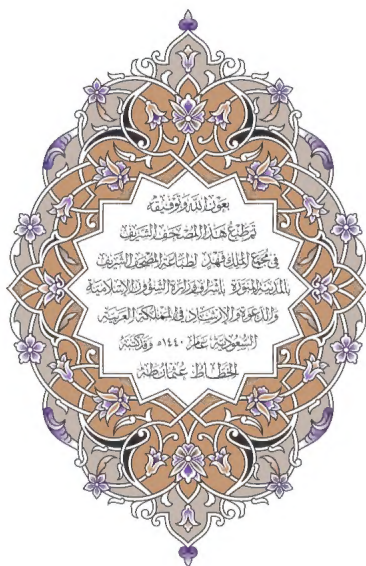 بعون الله وتوفيقه
تم طبع هذا المصحف الشريف
في مجمع الملك فهد لطباعة المصحف الشريف
بالمدينة المنورة بإشراف وزارة الشؤون الإسلامية
والدعوة والإرشاد في المملكة العربية
السعودية عام ١٤٤٠ه‍ وقد كتبه
الخطاط عثمان طه